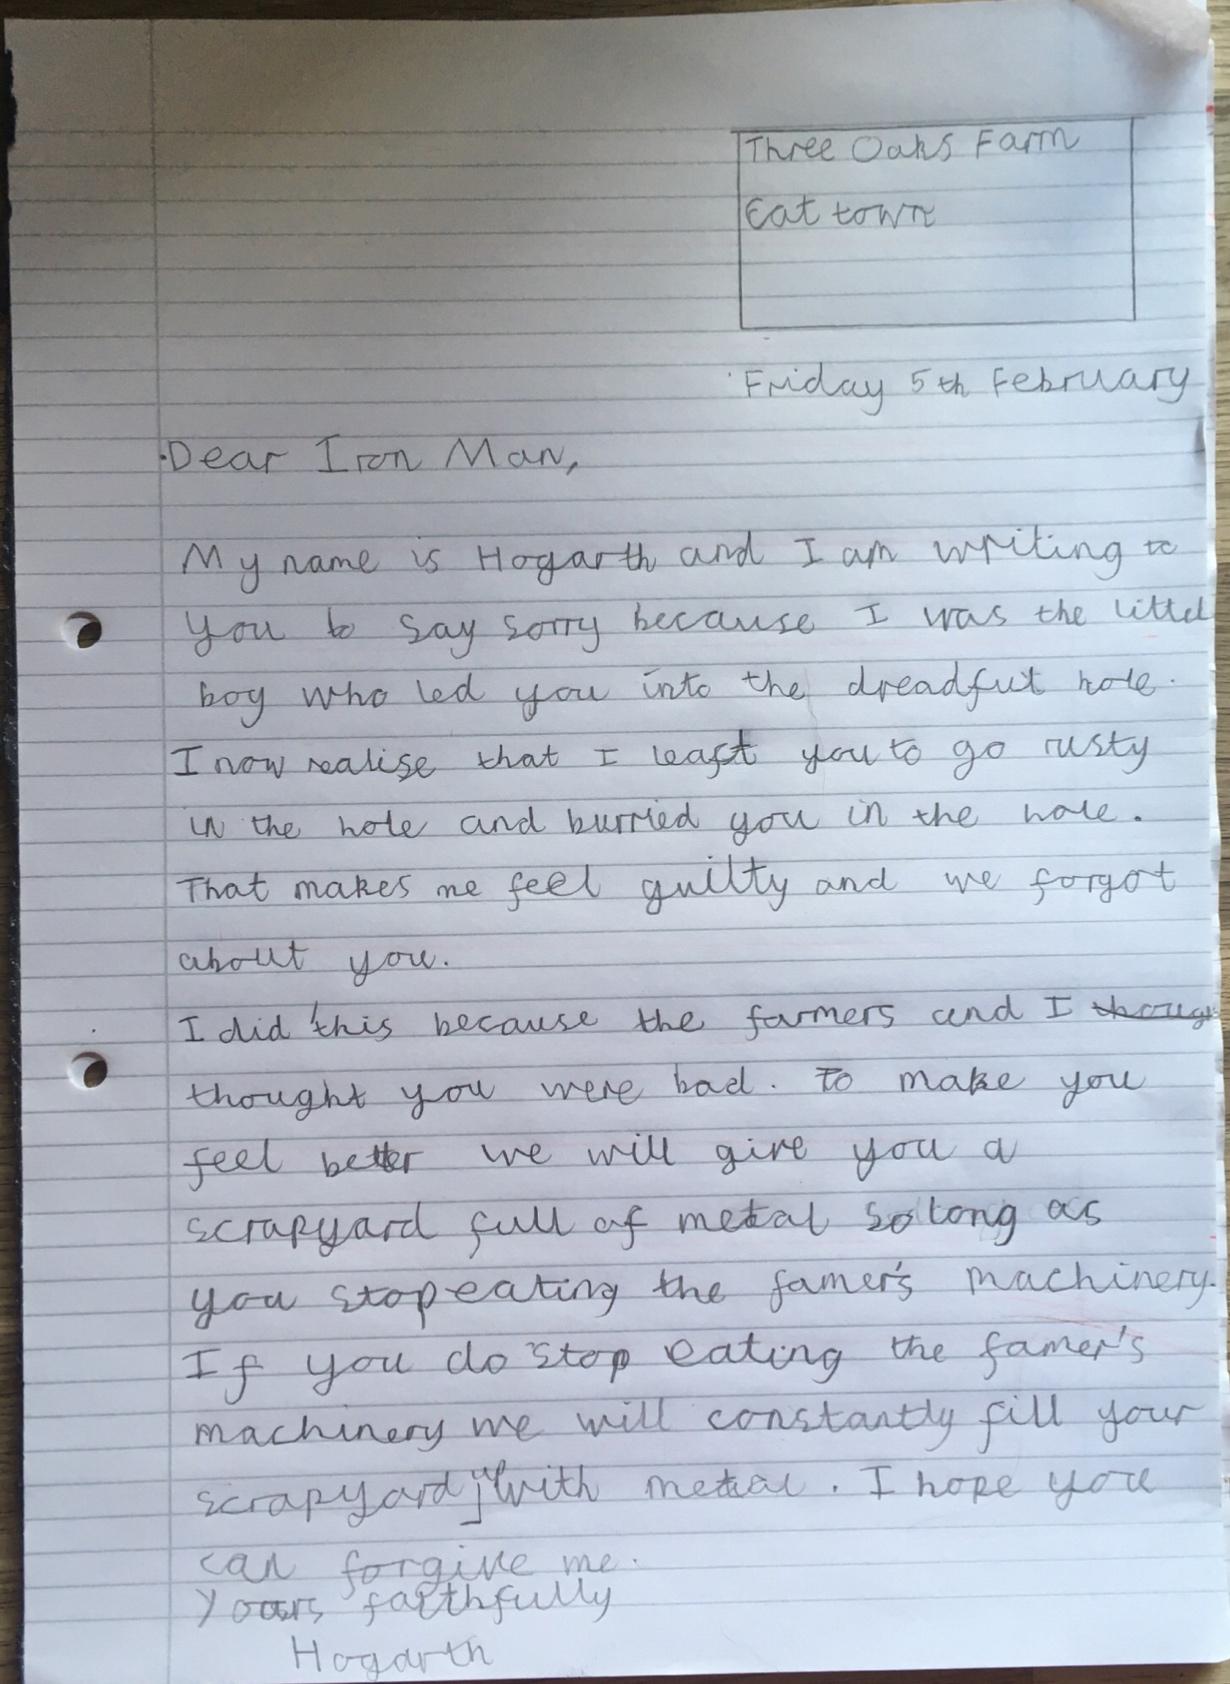 Three Oaks Farm
Eat town
Friday 5th February
Dear Iron Man,
My name is Hogarth and I am writing to
you to say sorry because I was the littel
boy who led you into the dreadful hole.
I now realise that I leaft you to go rusty
in the hole and burried you in the hole.
That makes me feel guilty and we forgot
about you.
I did this because the farmers and I thoug
thought you were bad. To make you
feel better we will give you a
scrapyard full of metal so long as
you stop eating the famer's machinery.
If you do stop eating the famer's
machinery we will constantly fill your
scrapyard with metal. I hope you
can forgive me.
Yours faithfully
Hogarth